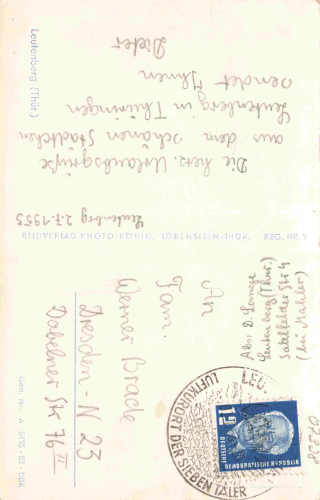 Leutenberg (Thür.)
Leutenberg 2.7.1955
Die herz. Urlaubsgrüße
aus dem schönen Städtchen
Leutenberg in Thüringen
sendet Ihnen
Dieter
BILDVERLAG PHOTO-KÖNIG, LOBENSTEIN-THÜR. REG. NR. 7
An
Fam.
Werner Brade
Dresden-N 23
Döbelner Str 76 II
Abs: D. Lange
Leutenberg (Thür.)
Saalfelder Str 4
(bei Mahler)
LEU
LUFTKURORT DER SIEBEN TÄLER
12
DEUTSCHE
DEMOKRATISCHE REPUBLIK
Gen. Nr. A 5495-53-DDR